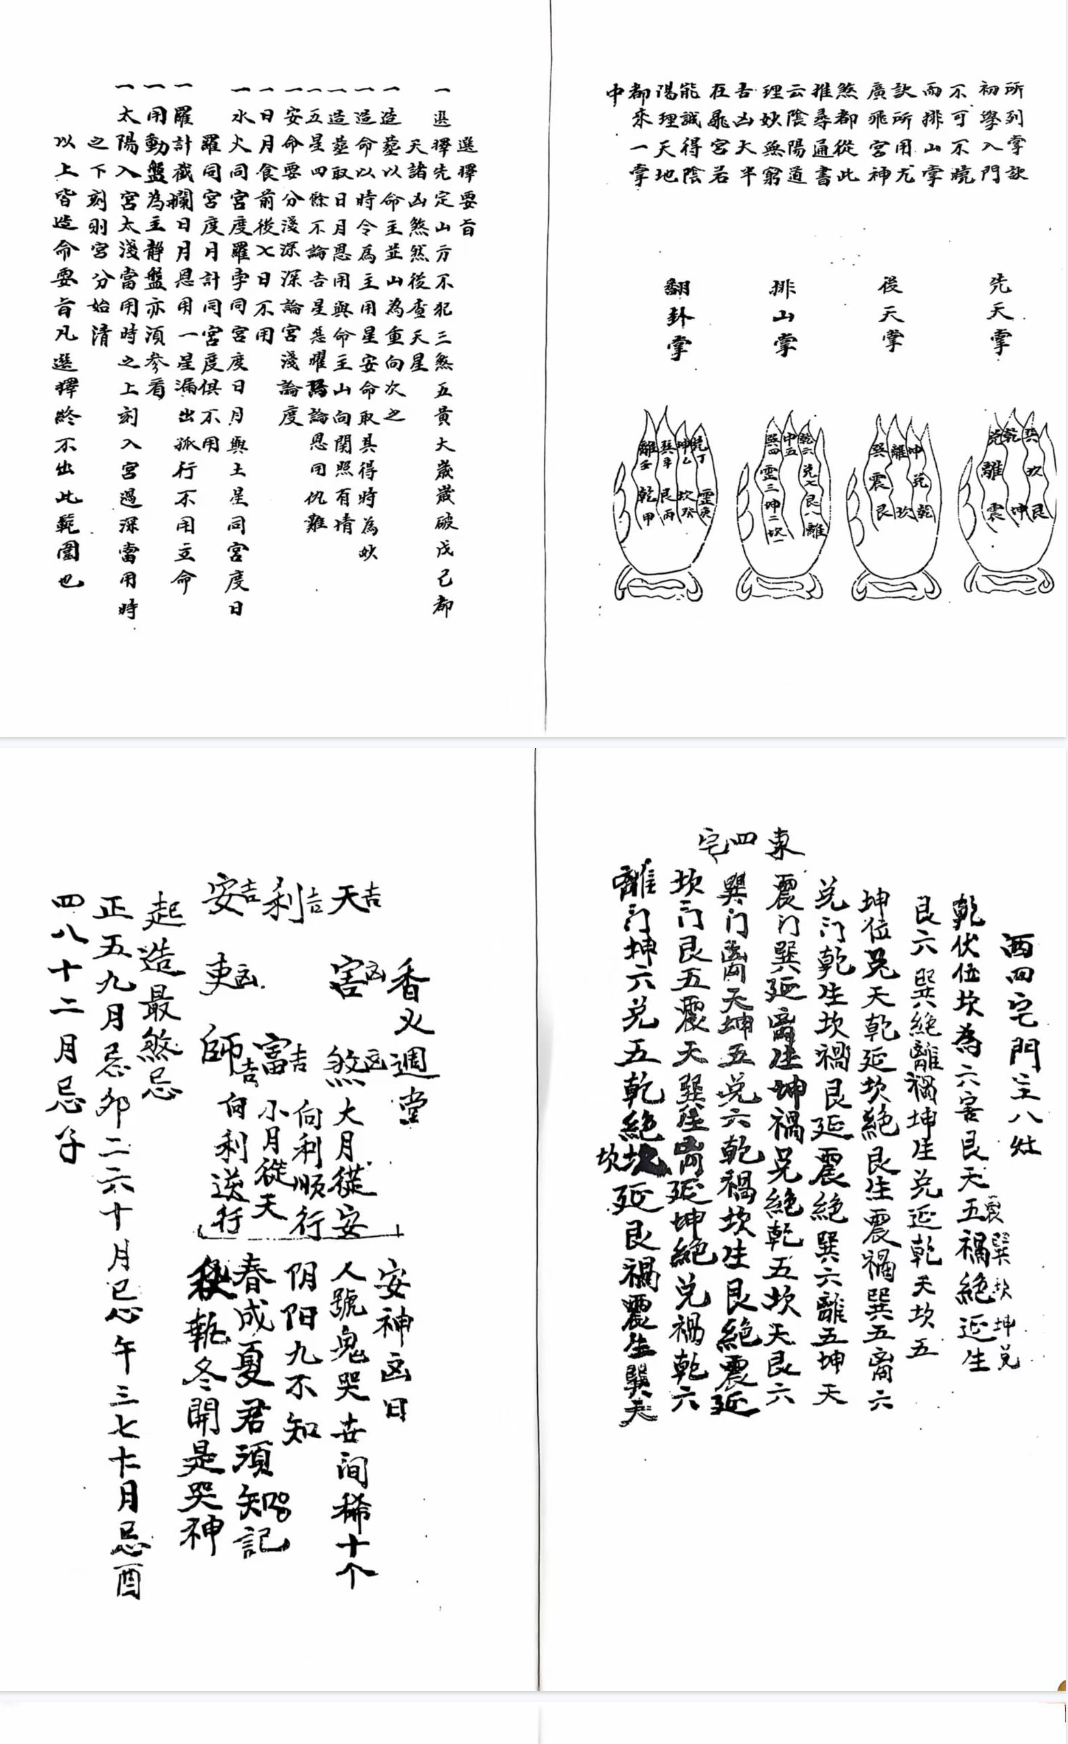 所列掌訣
初學入門
不可不曉
而排山掌
訣所用尤
廣飛宮神
煞都從此
推尋通書
云陰陽道
理妙無窮
吉凶大半
在飛宮若
能識得陰
陽理天地
都來一掌
中
先天掌
後天掌
排山掌
翻卦掌
選擇要旨
一選擇先定山方不犯三煞五黃大歲歲破戊己都
天諸凶煞然後查天星
一造葬以命主並山為重向次之
一造命以時令為主用星安命取其得時為妙
一造葬取日月恩用與命主山向關照有情
一五星四餘不論吉星惡曜端論恩用仇難
一安命要分淺深深論宮淺論度
一日月食前後七日不用
一水火同宮度羅孛同宮度日月與土星同宮度日
羅同宮度月計同宮度俱不用
一羅計截攔日月恩用一星漏出孤行不用立命
一用動盤為主靜盤亦須參看
一太陽入宮太淺當用時之上刻入宮過深當用時
之下刻則宮分始清
以上皆造命要旨凡選擇終不出此範圍也
西四宅門主八灶
乾伏位坎為六害艮天五禍絕延生
震巽坎坤兑
艮六巽絕離禍坤生兑延乾天坎五
坤位兑天乾延坎絕艮生震禍巽五离六
兑门乾生坎禍艮延震絕巽六離五坤天
東四宅
震门巽延离生坤禍兑絕乾五坎天艮六
巽门离天坤五兑六乾禍坎生艮絕震延
坎门艮五震天巽生离延坤絕兑禍乾六
離门坤六兑五乾絕坎延艮禍震生巽天
坎
香火週堂
天吉 害凶 煞凶
利吉 富吉
安吉 吏凶 師吉
大月從安
向利順行
小月從天
向利送行
安神凶日
人號鬼哭世间稀十个
阴阳九不知
春成夏君須知記
秋執冬開是哭神
起造最煞忌
正五九月忌卯二六十月忌午三七十一月忌酉
四八十二月忌子